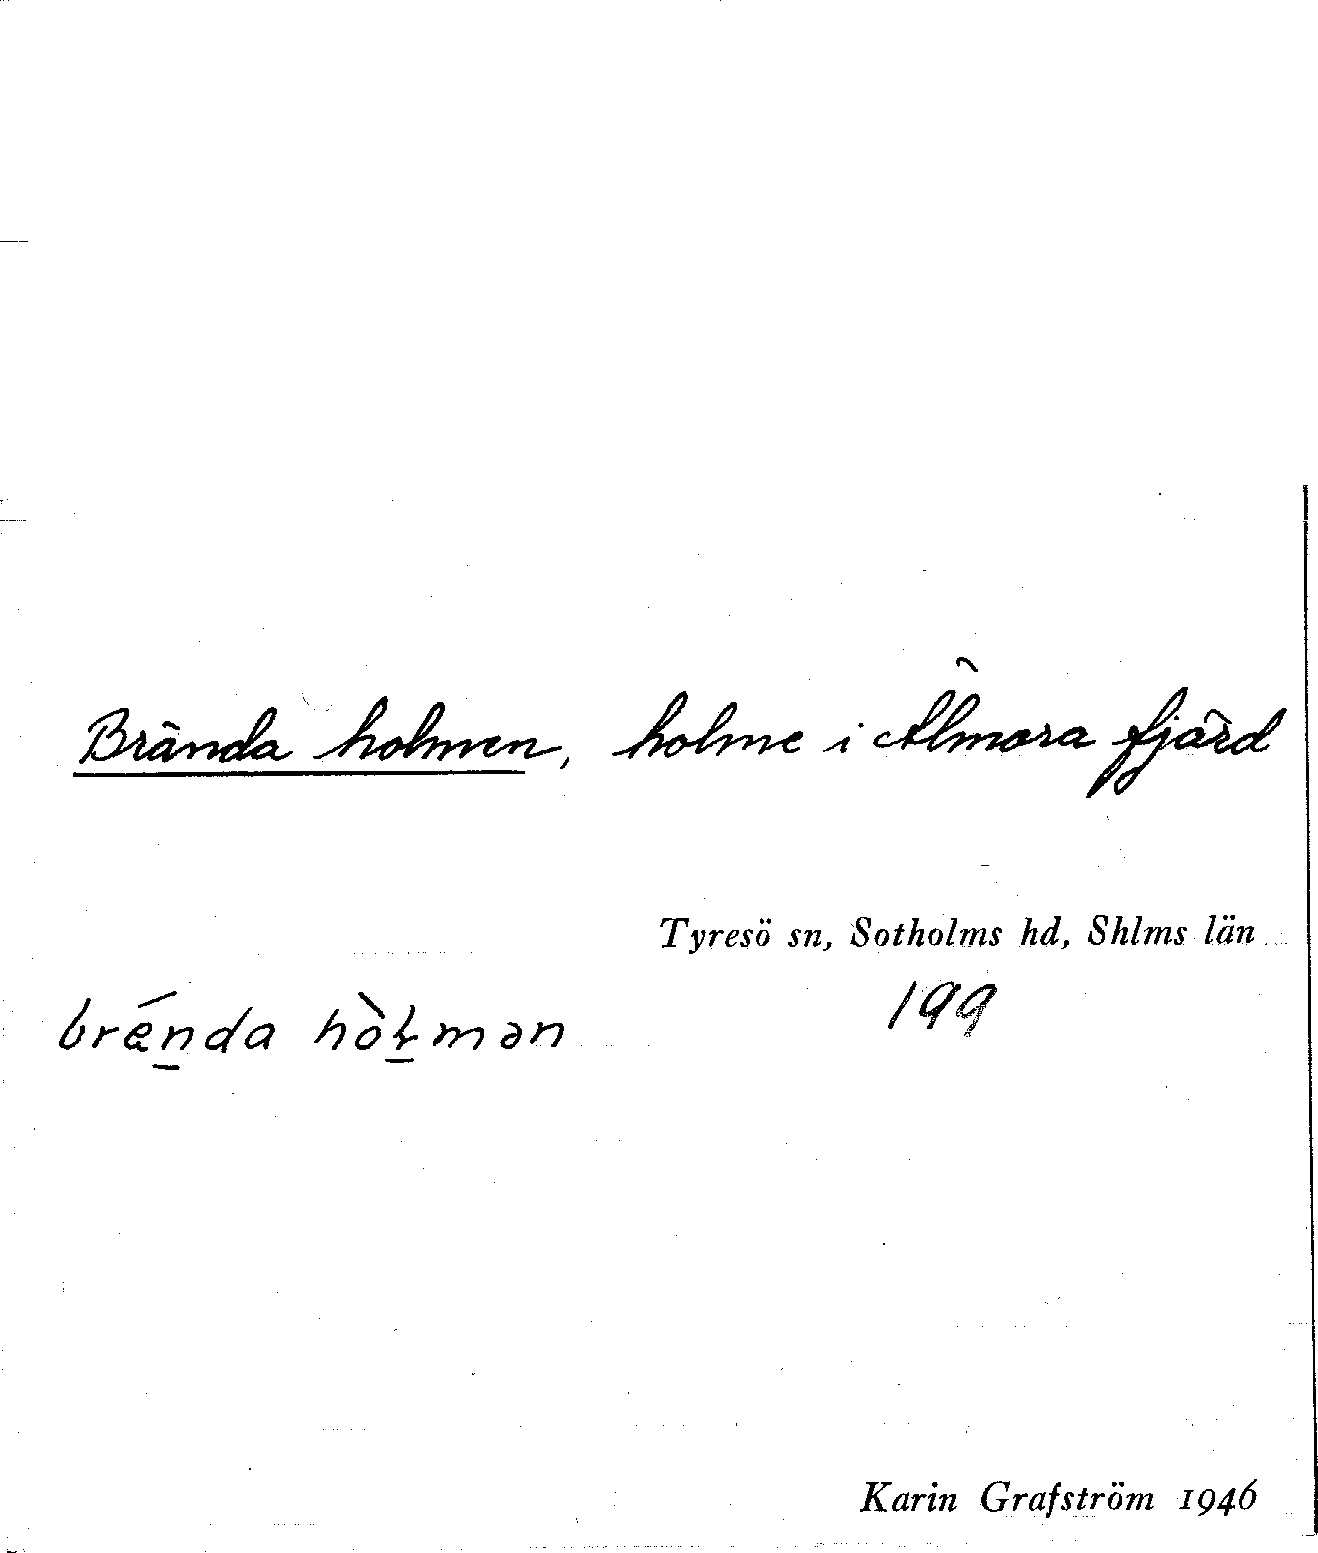 Brända holmen, holme i Älmora fjärd
Tyresö sn, Sotholms hd, Shlms län
199
brénda hòłmən
Karin Grafström 1946